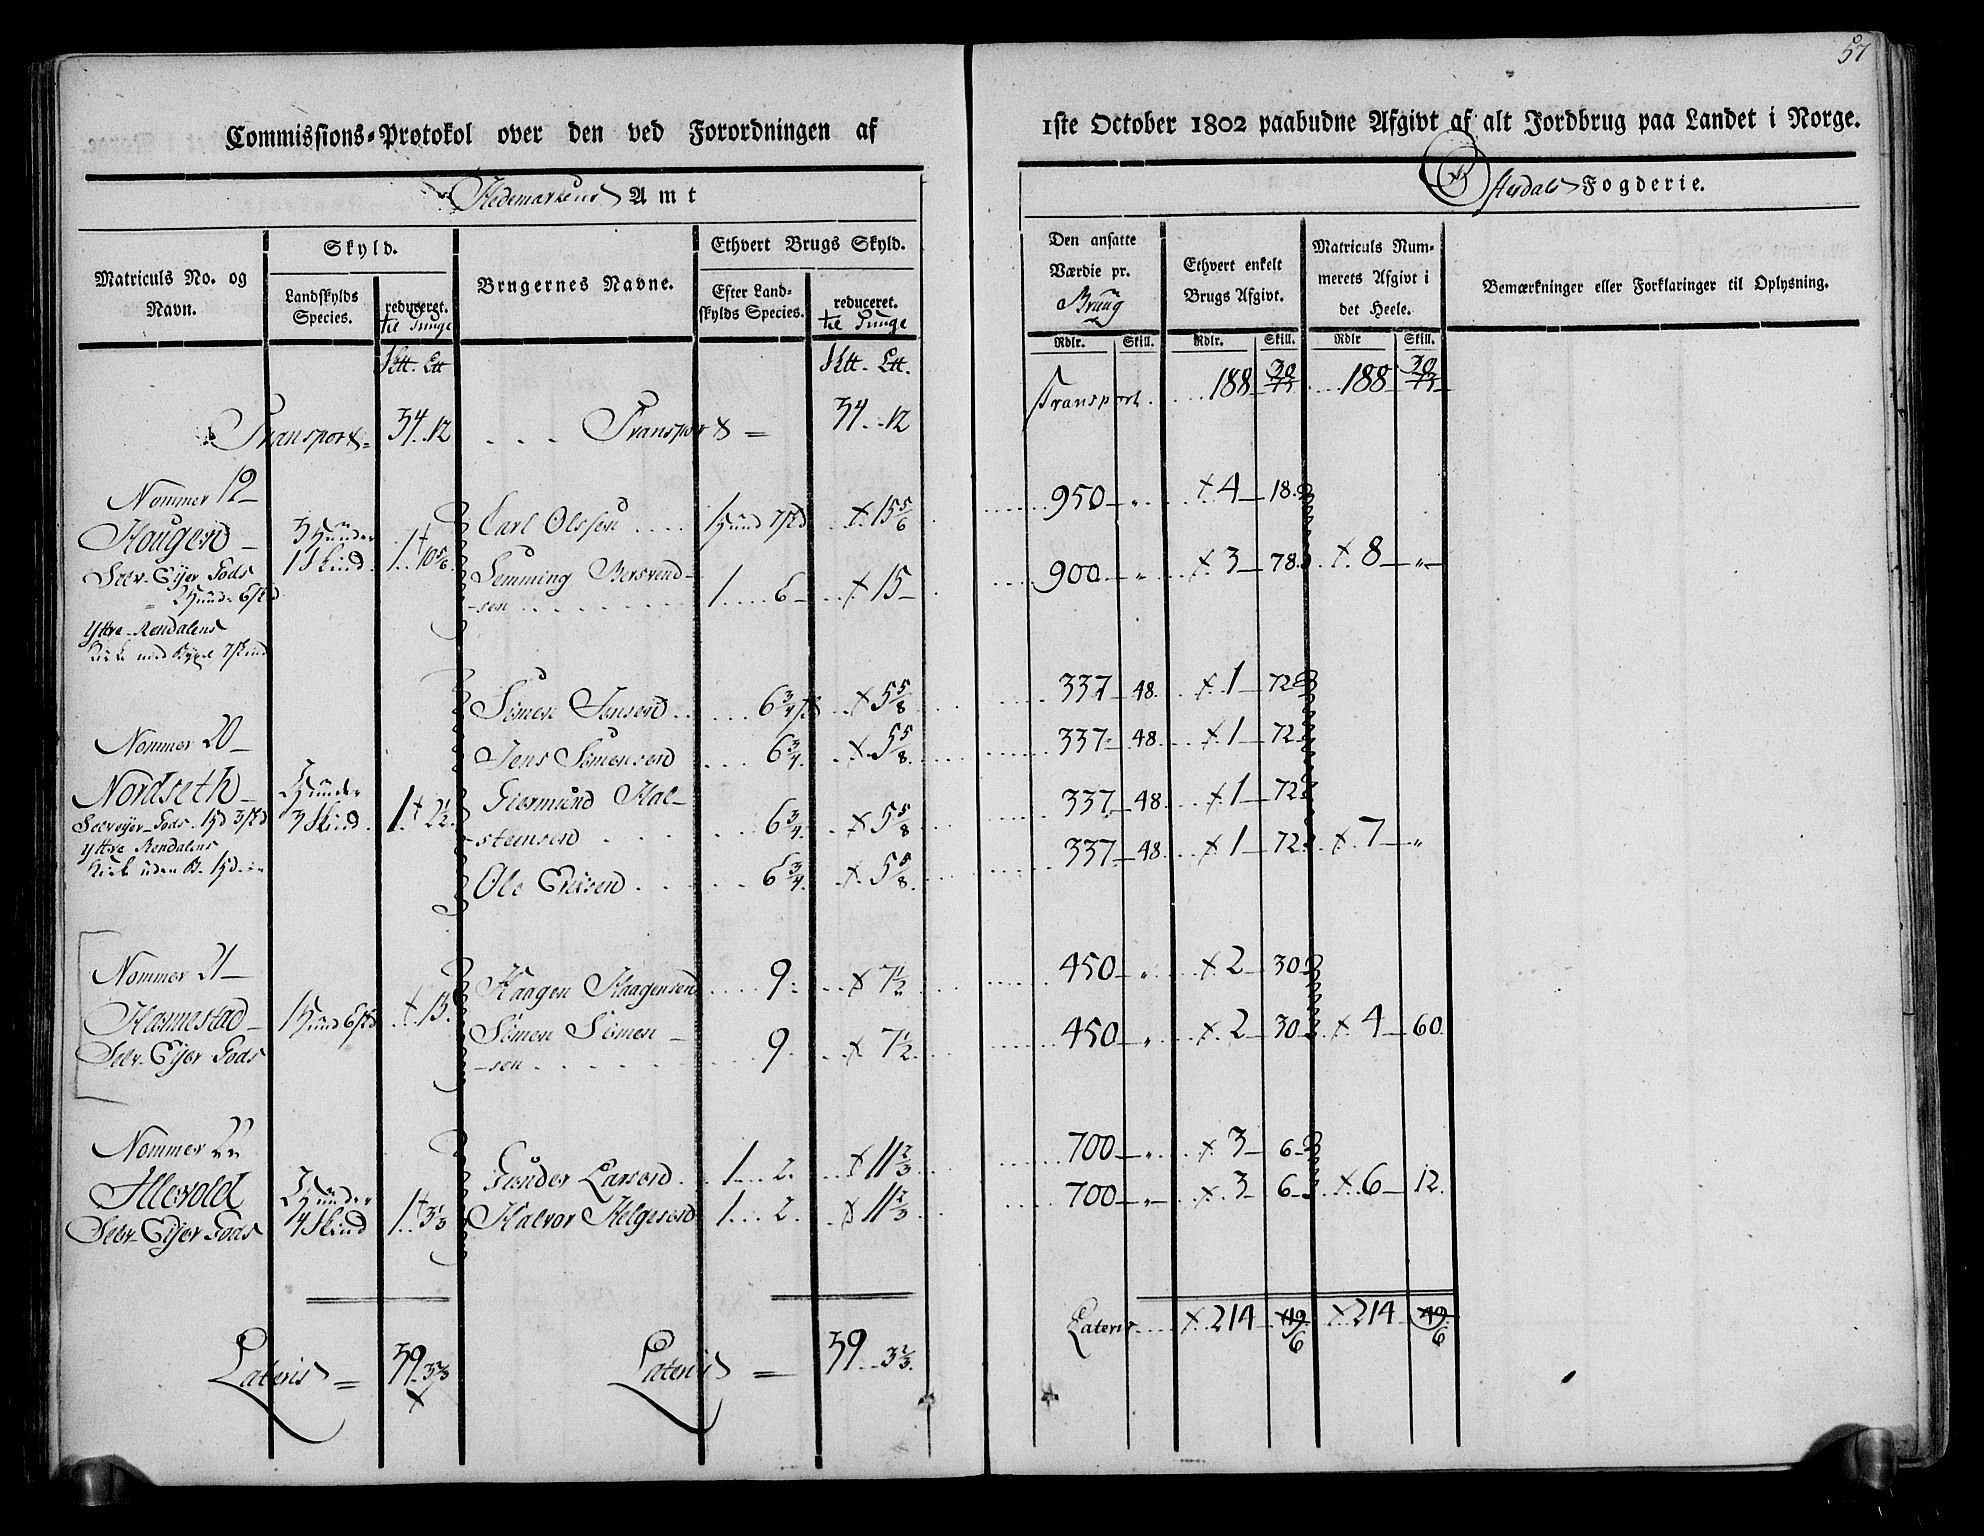 57
Commissions=Protokol over den ved Forordningen af 1ste October 1802 paabudne Afgivt af alt Jordbrug paa Landet i Norge.
Hedemarkens Amt
Østerdals Fogderie.
Matriculs No. og Navn.
Skyld.
Landskylds Species.
reduceret.
til Tunge
Brugernes Navne.
Ethvert Brugs Skyld.
Efter Landskylds Species.
reduceret.
til Tunge
Den ansatte Værdie pr.
Bruug
Ethvert enkelt Brugs Afgivt.
Matriculs Nummerets Afgivt i det Heele.
Bemærkninger eller Forklaringer til Oplysning.
Rdlr. Skill. Rdlr. Skill. Rdlr Skill.
Transport = 34..12 . . . Transport = 34..12
Transport 188 188
Nommer 19
Haugen 3 Hunder 1 Skind 1..10 5/6
Selv-Eijer Gods
2 Hund 6 skd
Yttre Rendalens
Kirke med Bygsel 7 skind
Carl Olssen 1 Hund 7 skd 15 5/6 950 " 4 18
Lemming Bersvend-
-sen 1 6 15 900 " 3 78 8 "
Nommer 20
Nordseth 2 Hunder 3 Skind 1 2 1/2
Selveijer-Gods 1 Hd 3 skd
Yttre Rendalens
Kirke uden B. 1 Hd
Simen Jensen 6 3/4 skd 5 5/8 337 48 1 72
Jens Simensen 6 3/4 5 5/8 337 48 1 72
Giermund Hal-
-steensen 6 3/4 5 5/8 337 48 1 72
Ole Ericsen 6 3/4 5 5/8 337 48 1 72 7 "
Nommer 21
Hannestad 1 Hund 6 skd 15
Selv-Eijer Gods
Haagen Haagensen 9 7 1/2 450 " 2 30
Simen Simen-
-sen 9 7 1/2 450 " 2 30 4 60
Nommer 22
Illevold 2 Hunder 4 Skind 1 3 1/3
Selv-Eijer Gods
Gunder Larsen 1 2 11 2/3 700 " 3 6
Halvor Helgesen 1 2 11 2/3 700 " 3 6 6 12
Lateris = 39..3 2/3 Lateris = 39..3 2/3
Lateris 214 6 214 6